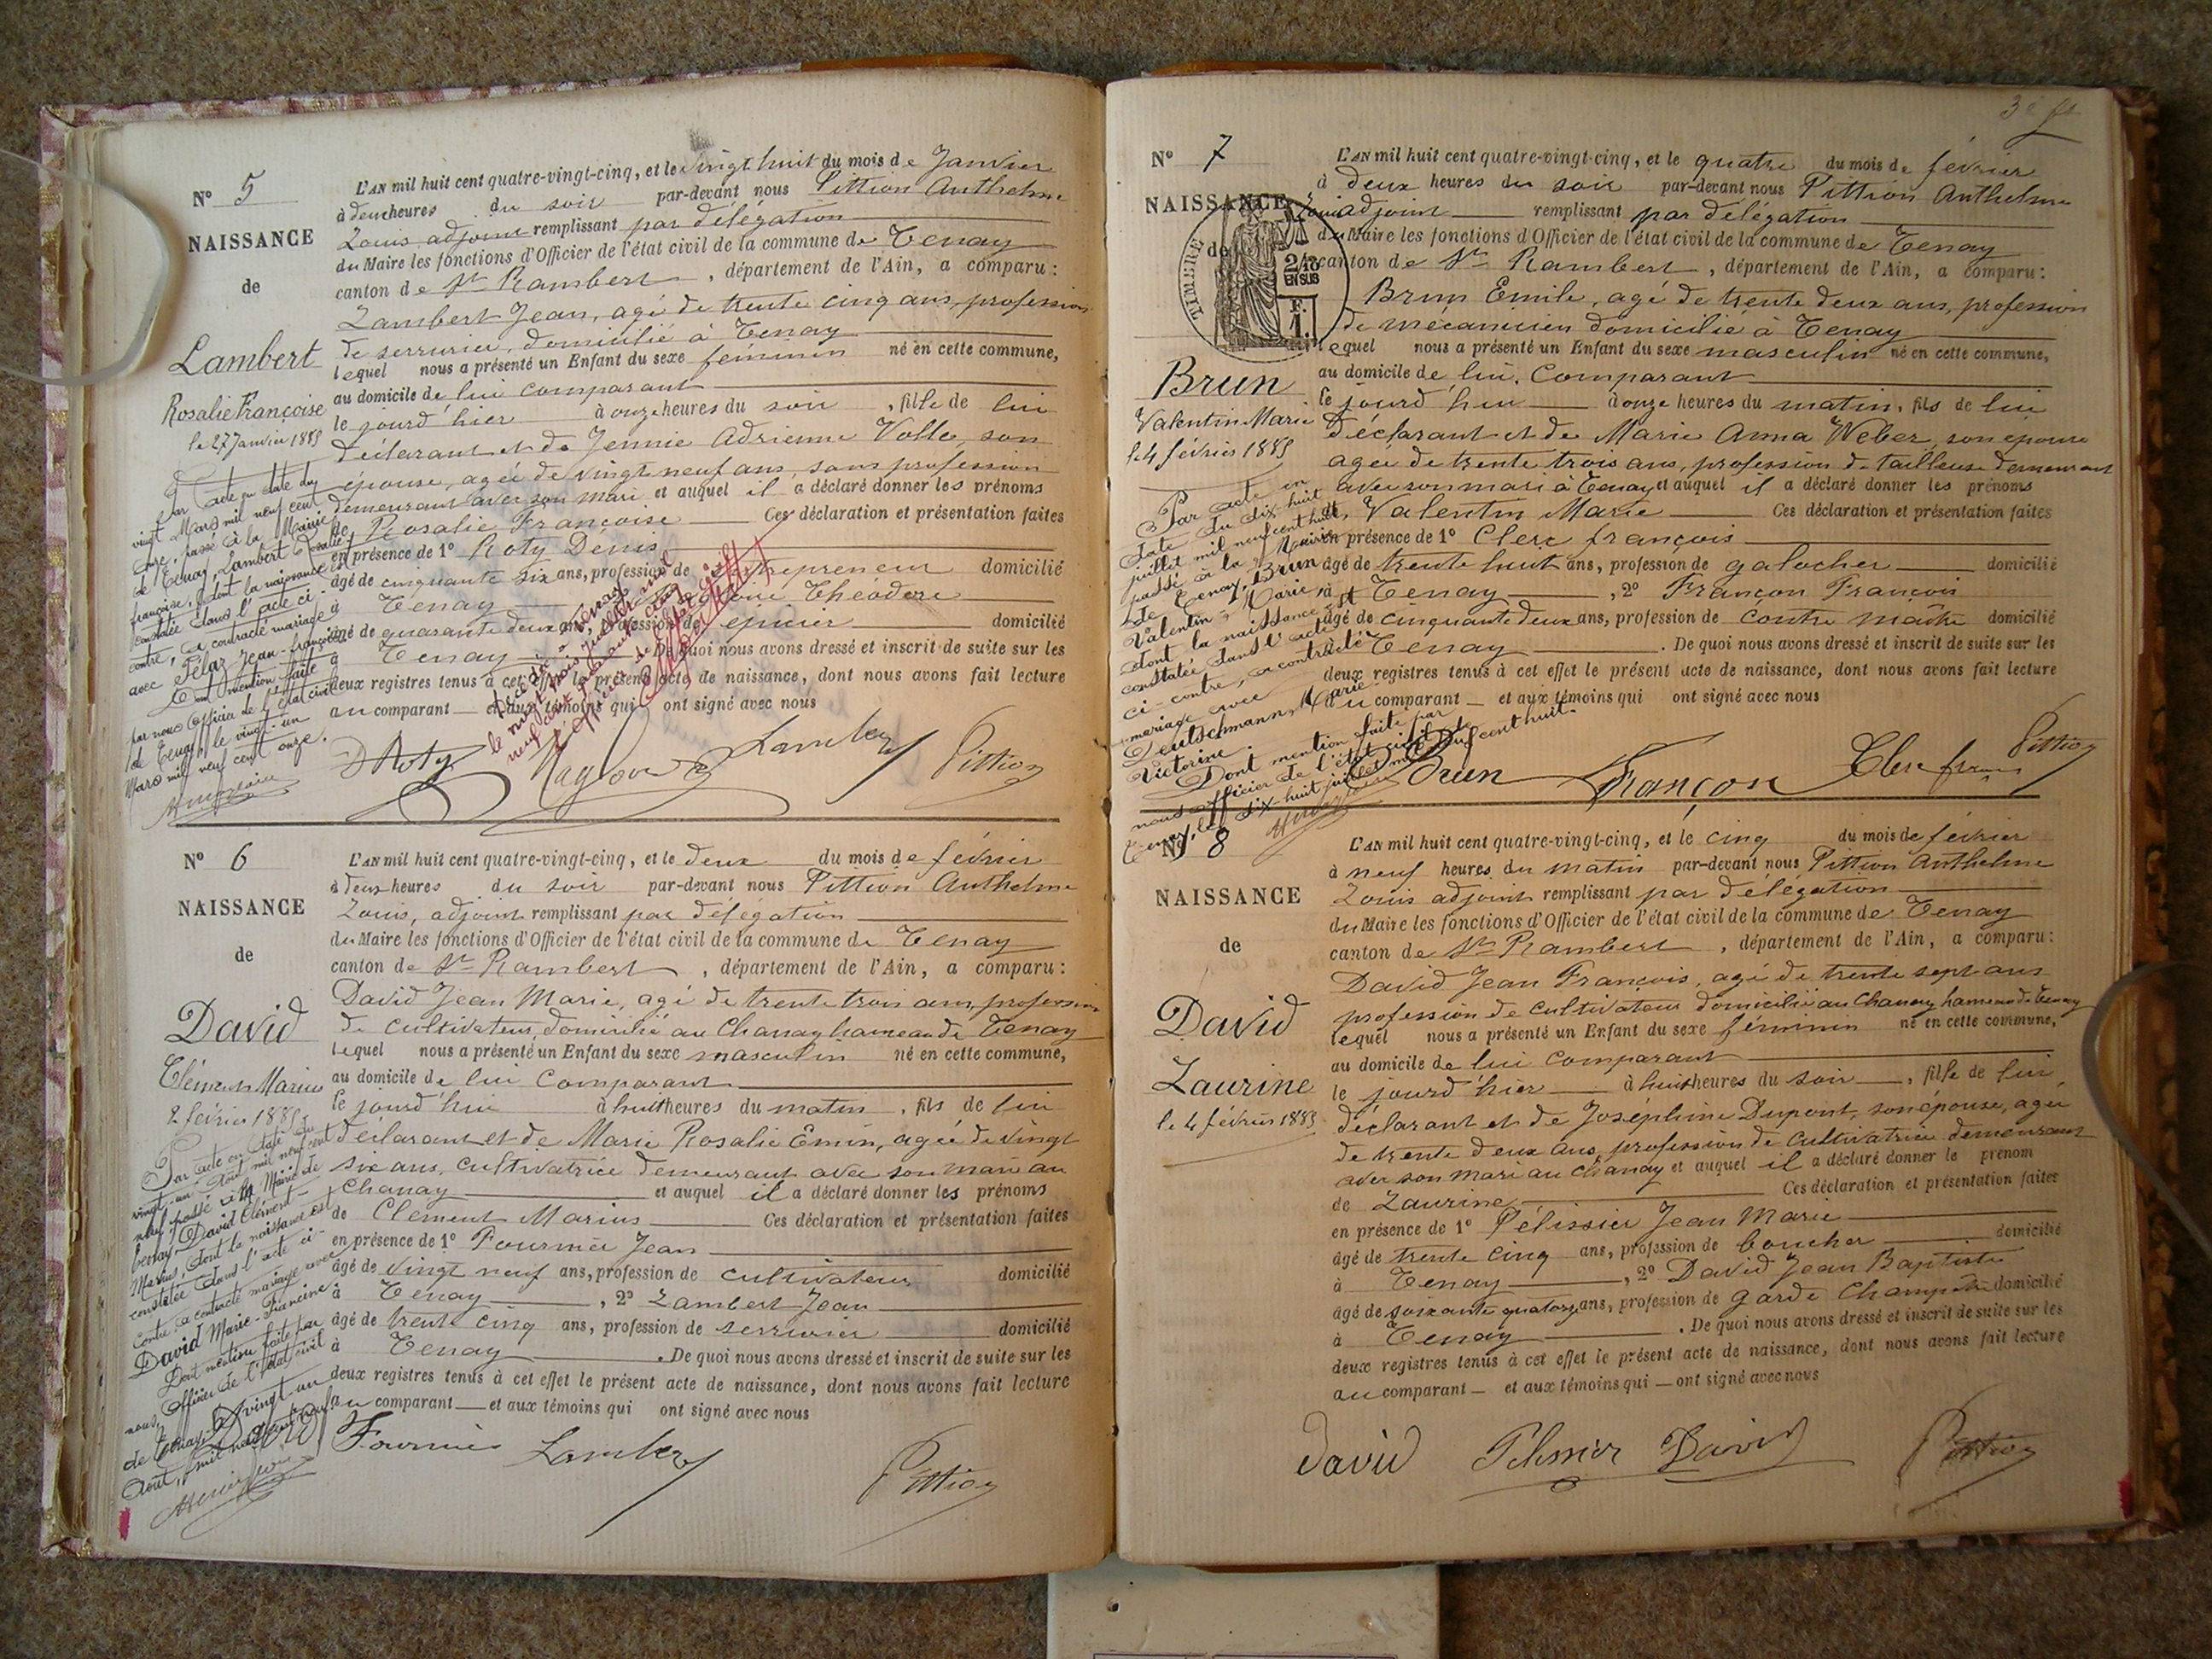 3e ft
N° 5
NAISSANCE
de
Lambert
Rosalie Françoise
le 27 Janvier 1885
Par acte en date du
vingt Mars mil neuf cent
onze, passé à la Mairie
de Tenay, Lambert Rosalie
françoise, dont la naissance est
constatée dans l'acte ci-
contre, a contracté mariage
avec Pélaz Jean-françois
Dont mention faite
par nous Officier de l'état civil
de Tenay, le vingt-un
Mars mil neuf cent onze.
L'AN mil huit cent quatre-vingt-cinq, et le vingt huit du mois de Janvier
à deux heures du soir par-devant nous Pittion Anthelme
Louis, adjoint remplissant par délégation
du Maire les fonctions d'Officier de l'état civil de la commune de Tenay
canton de St Rambert, département de l'Ain, a comparu:
Lambert Jean, agé de trente cinq ans, profession
de serrurier, domicilié à Tenay
lequel nous a présenté un Enfant du sexe féminin né en cette commune,
au domicile de lui comparant
le jourd'hier à onze heures du soir, fille de lui
déclarant et de Jennie Adrienne Volle, son
épouse, agée de vingt neuf ans, sans profession
demeurant avec son mari et auquel il a déclaré donner les prénoms
de Rosalie Françoise Ces déclaration et présentation faites
en présence de 1° Roty Dénis
âgé de cinquante six ans, profession de entrepreneur domicilié
à Tenay Théodore
âgé de quarante deux ans, profession de épicier domicilié
à Tenay De quoi nous avons dressé et inscrit de suite sur les
deux registres tenus à cet effet le présent acte de naissance, dont nous avons fait lecture
au comparant et aux témoins qui ont signé avec nous
Décédée à Tenay
D Roty Lambert Pittion
N° 6
NAISSANCE
de
David
Clément Marius
2 février 1885
Par acte en date du
vingt-un Août mil neuf cent
neuf passé à la Mairie de
Tenay, David Clément-
Marius dont la naissance est
constatée dans l'acte ci-
contre a contracté mariage avec
David Marie-Francine
Dont mention faite par
nous, Officier de l'état civil
de Tenay, le vingt un
Août, mil neuf cent neuf
L'AN mil huit cent quatre-vingt-cinq, et le deux du mois de février
à deux heures du soir par-devant nous Pittion Anthelme
Louis, adjoint remplissant par délégation
du Maire les fonctions d'Officier de l'état civil de la commune de Tenay
canton de St Rambert, département de l'Ain, a comparu:
David Jean Marie, agé de trente trois ans, profession
de cultivateur domicilié au Chanay hameau de Tenay
lequel nous a présenté un Enfant du sexe masculin né en cette commune,
au domicile de lui comparant
le jourd'hui à huit heures du matin, fils de lui
déclarant et de Marie Rosalie Emin, agée de vingt
six ans, cultivatrice demeurant avec son mari au
Chanay et auquel il a déclaré donner les prénoms
de Clément Marius Ces déclaration et présentation faites
en présence de 1° Fournier Jean
âgé de vingt neuf ans, profession de cultivateur domicilié
à Tenay, 2° Lambert Jean
âgé de trente cinq ans, profession de serrurier domicilié
à Tenay. De quoi nous avons dressé et inscrit de suite sur les
deux registres tenus à cet effet le présent acte de naissance, dont nous avons fait lecture
au comparant et aux témoins qui ont signé avec nous
David Fournier Lambert Pittion
N° 7
NAISSANCE
de
TIMBRE
2/10
EN SUS
Brun
Valentin Marie
le 4 février 1885
Par acte en
date du dix huit
juillet mil neuf cent huit
passé à la Mairie
de Tenay, Brun
Valentin-Marie,
dont la naissance est
constatée dans l'acte
ci-contre, a contracté
mariage avec
Deutschmann, Marie
Victorine.
Dont mention faite par
nous officier de l'état civil de
Tenay, le dix-huit juillet mil neuf cent huit.
L'AN mil huit cent quatre-vingt-cinq, et le quatre du mois de février
à deux heures du soir par-devant nous Pittion Anthelme
Louis adjoint remplissant par délégation
du Maire les fonctions d'Officier de l'état civil de la commune de Tenay
canton de St Rambert, département de l'Ain, a comparu:
Brun Emile, agé de trente deux ans, profession
de mécanicien domicilié à Tenay
lequel nous a présenté un Enfant du sexe masculin né en cette commune,
au domicile de lui comparant
le jourd'hui à onze heures du matin, fils de lui
déclarant et de Marie Anna Weber, son épouse
agée de trente trois ans, profession de tailleuse demeurant
avec son mari à Tenay et auquel il a déclaré donner les prénoms
de Valentin Marie Ces déclaration et présentation faites
en présence de 1° Clerc françois
âgé de trente huit ans, profession de galocher domicilié
à Tenay, 2° Françon François
âgé de cinquante deux ans, profession de contre maître domicilié
à Tenay. De quoi nous avons dressé et inscrit de suite sur les
deux registres tenus à cet effet le présent acte de naissance, dont nous avons fait lecture
au comparant et aux témoins qui ont signé avec nous
Brun Françon Clerc Pittion
N° 8
NAISSANCE
de
David
Laurine
le 4 février 1885
L'AN mil huit cent quatre-vingt-cinq, et le cinq du mois de février
à neuf heures du matin par-devant nous Pittion Anthelme
Louis adjoint remplissant par délégation
du Maire les fonctions d'Officier de l'état civil de la commune de Tenay
canton de St Rambert, département de l'Ain, a comparu:
David Jean François, agé de trente sept ans
profession de cultivateur domicilié au Chanay hameau de Tenay
lequel nous a présenté un Enfant du sexe féminin né en cette commune,
au domicile de lui comparant
le jourd'hier à huit heures du soir, fille de lui
déclarant et de Joséphine Dupont, son épouse, agée
de trente deux ans, profession de cultivatrice demeurant
avec son mari au Chanay et auquel il a déclaré donner le prénom
de Laurine Ces déclaration et présentation faites
en présence de 1° Pélissier Jean Marie
âgé de trente cinq ans, profession de boucher domicilié
à Tenay, 2° David Jean Baptiste
âgé de soixante quatorze ans, profession de garde champêtre domicilié
à Tenay. De quoi nous avons dressé et inscrit de suite sur les
deux registres tenus à cet effet le présent acte de naissance, dont nous avons fait lecture
au comparant et aux témoins qui ont signé avec nous
David Pelissier David Pittion